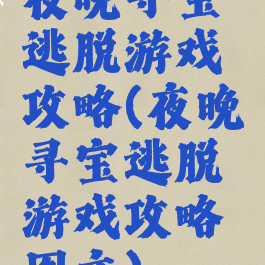 夜晚寻宝
逃脱游戏
攻略(夜晚
寻宝逃脱
游戏攻略